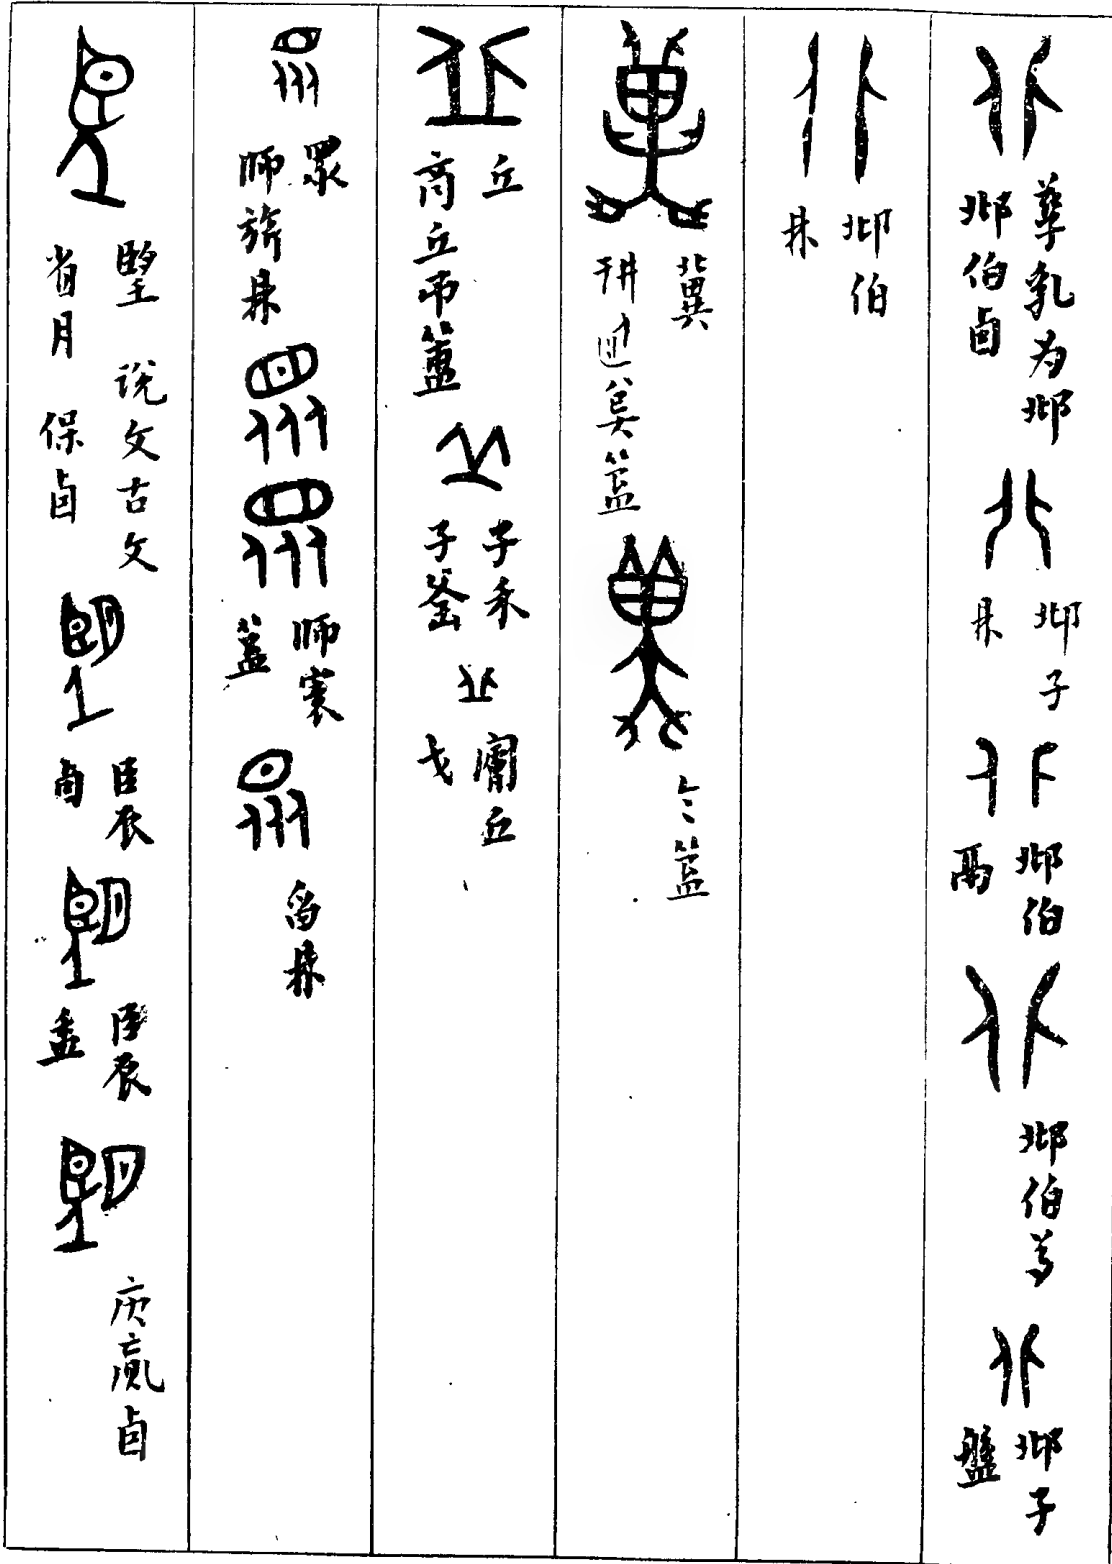 孳乳为邶
邶伯卣
邶子
鼎
邶伯
鬲
邶伯
邶子
盤
邶伯
鼎
冀
簋
簋
丘
商丘弔簠
子禾
子釜
丘
戈
眾
师旂鼎
师寰
簋
曶鼎
朢 说文古文
省月 保卣
臣辰
卣
臣辰
盉
庚嬴卣